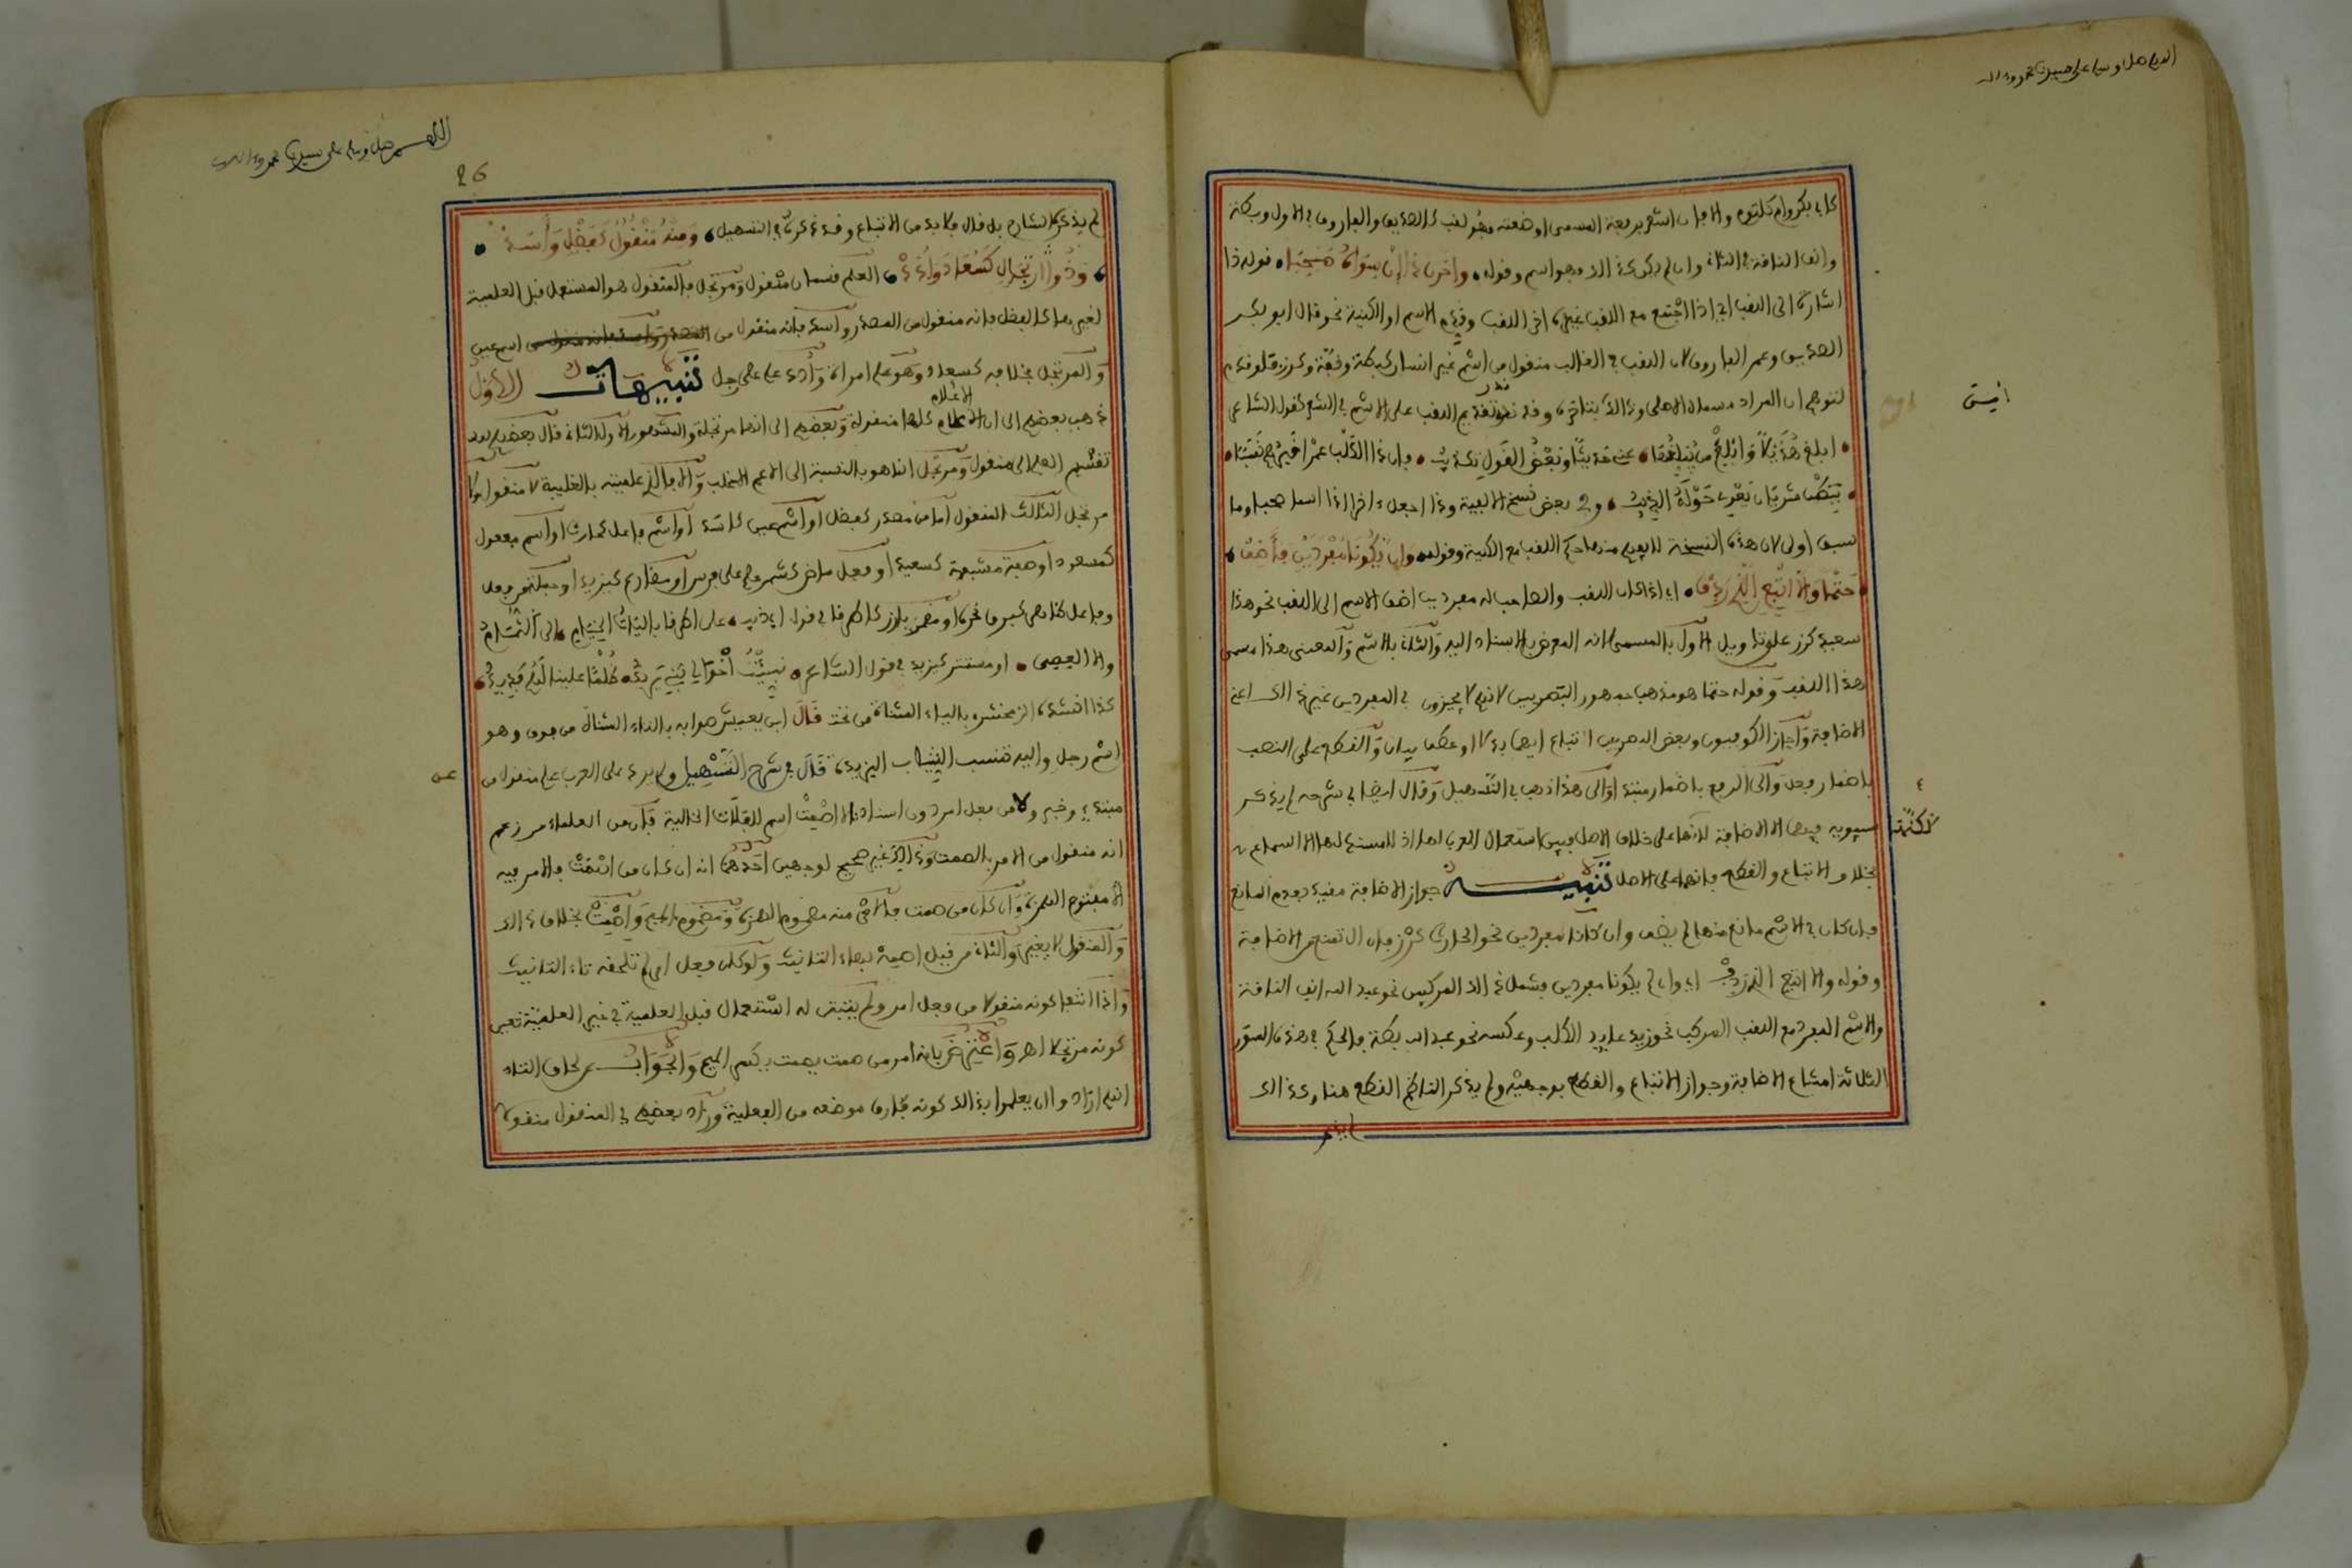 اللهم صل وسلم على سيدنا محمد وءاله
كابي بكر وام كلثوم والا فان اشعر برفعة المسمى او ضعته فهو لقب كالصديق والفاروق في الاول وبطة
وانف الناقة في الثاني وان لم يكن كذلك فهو اسم وقوله واخرن ذا ان سواه صحبا قوله ذا
اشارة الى اللقب اي اذا اجتمع مع اللقب غيره اخر اللقب وقدم الاسم او الكنية نحو قال ابو بكر
الصديق وعمر الفاروق لان اللقب في الغالب منقول من اسم غير انسان كبطة وقفة وكرز فلو قدم
لتوهم ان المراد مسماه الاصلي وذلك بتاخره وقد ندر تقديم اللقب على الاسم في الشعر كقول الشاعر
ابلغ هذيلا وابلغ من يبلغها عني حديثا وبعض القول تكذيب بان ذا الكلب عمرا خيرهم نسبا
ببطن شريان يعوي حوله الذيب وفي بعض نسخ الالفية وذا اجعل ءاخرا اذا اسما صحبا وما
سبق اولى لان هذه النسخة لا يفهم منها حكم اللقب مع الكنية وقوله وان يكونا مفردين فاضف
حتما والا اتبع الذي ردف اي اذا كان اللقب والصاحب له مفردين اضف الاسم الى اللقب نحو هذا
سعيد كرز علوتا ويل الاول بالمسمى لانه المعرض للاسناد اليه والثاني بالاسم والمعنى هذا مسمى
هذا اللقب وقوله حتما هو مذهب جمهور البصريين لانهم لا يجيزون في المفردين غير ذلك اعني
الاضافة واجاز الكوفيون وبعض البصريين اتباع ايضا بدلا او عطف بيان والقطع على النصب
باضمار فعل والى الرفع باضمار مبتدء والى هذا ذهب في التسهيل وقال ايضا في شرحه لم يذكر
سيبويه فيهما الا الاضافة لانها على خلاف الاصل فبين استعمال العرب لها اذ لا مستند لها الا السماع
بخلاف الاتباع والقطع فانهما على الاصل تنبيه جواز الاضافة مقيد بعدم المانع
فان كان في الاسم مانع منها لم يضف وان كانا مفردين نحو الحارث كرز فان ال تمنع من الاضافة
وقوله والا اتبع الذي ردف اي وان لم يكونا مفردين فشمل ذلك المركبين نحو عبد الله انف الناقة
والاسم المفرد مع اللقب المركب نحو زيد عايد الكلب وعكسه نحو عبد الله بطة والحكم في هذه الصور
الثلاثة امتناع الاضافة وجواز الاتباع والقطع بوجهيه ولم يذكر الناظم القطع هنا وكذلك
لم يذكر
اللهم صل وسلم على سيدنا محمد وءاله
26
لم يذكره الشارح بل قال فلا بد من الاتباع وقد ذكره في التسهيل ومنه منقول كفضل واسد
وذو ارتجال كسعاد وادد العلم قسمان منقول ومرتجل فالمنقول هو المستعمل قبل العلمية
لغيرها كالفضل فانه منقول من المصدر واسد فانه منقول من اسم عين
والمرتجل بخلافه كسعاد وهو علم امراة وادد علم على رجل تنبيهات الاول
ذهب بعضهم الى ان الاعلام كلها منقولة وبعضهم الى انها مرتجلة والمشهور الاول الثاني قال بعضهم بعد
تقسيم العلم الى منقول ومرتجل انما هو بالنسبة الى الاعم الاغلب والا فالذي علميته بالغلبة لا منقول ولا
مرتجل الثالث المنقول اما من مصدر كفضل او اسم عين كاسد او اسم فاعل كحارث او اسم مفعول
كمسعود او صفة مشبهة كسعيد او فعل ماض كشمر علم على فرس او مضارع كيزيد او جملة من فعل
وفاعل
والا العصي او مستتر كيزيد في قول الشاعر نبئت اخوالي بني يزيد ظلما علينا لهم فديد
كذا انشده الزمخشري بالياء المثناة من تحت قال ابن يعيش صوابه بالتاء المثناة من فوق وهو
اسم رجل واليه تنسب الثياب اليزيدية قال في شرح التسهيل ولم يرد على العرب علم منقول من
مبتدء وخبر ولا من فعل امر دون اسناد الا اصمت اسم للفلاة الخالية قال من العلماء من زعم
انه منقول من الامر بالصمت وذلك غير صحيح لوجهين احدهما انه ان كان من اصمت فالامر فيه
الا مفتوح الهمزة وان كان من صمت فالامر منه مضموم الهمزة ومضموم الميم واصمت بخلاف ذلك
والمنقول لا يغير والثاني من قبيل اصمتة بهاء التانيث ولو كان فعل امر لم تلحقه تاء التانيث
واذا انتفى كونه منقولا من فعل امر ولم يثبت له استعمال قبل العلمية في غير العلمية تعين
كونه مرتجلا اهـ واعترض بانه امر من صمت يصمت بكسر الميم والجواب عن لحاق التاء
انهم ارادوا ان يعلموا بذلك كونه فارق موضعه من الفعلية وزاد بعضهم في المنقول منقولا